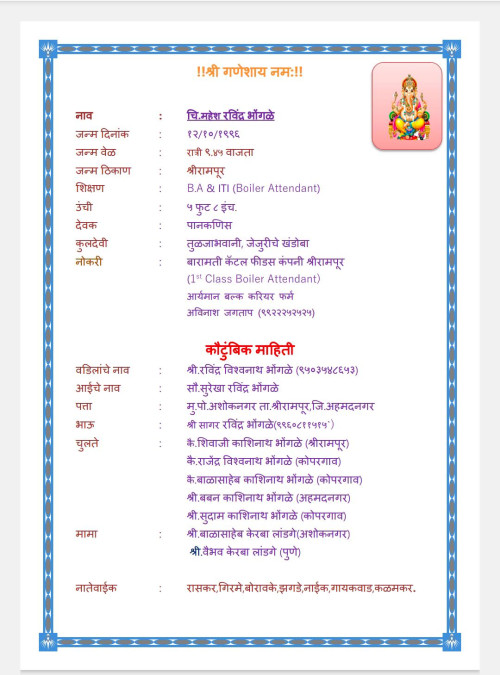 !!श्री गणेशाय नम:!!
नाव : चि.महेश रविंद्र भोंगळे
जन्म दिनांक : १२/१०/१९९६
जन्म वेळ : रात्री ९.४५ वाजता
जन्म ठिकाण : श्रीरामपूर
शिक्षण : B.A & ITI (Boiler Attendant)
उंची : ५ फुट ८ इंच.
देवक : पानकणिस
कुलदेवी : तुळजाभवानी, जेजुरीचे खंडोबा
नोकरी : बारामती कॅटल फीडस कंपनी श्रीरामपूर
(1st Class Boiler Attendant)
आर्यमान बल्क करियर फर्म
अविनाश जगताप (९९२२२५२५२५)
कौटुंबिक माहिती
वडिलांचे नाव : श्री.रविंद्र विश्वनाथ भोंगळे (९५०३५४८६५३)
आईचे नाव : सौ.सुरेखा रविंद्र भोंगळे
पता : मु.पो.अशोकनगर ता.श्रीरामपूर,जि.अहमदनगर
भाऊ : श्री सागर रविंद्र भोंगळे(९९६०८११५१५`)
चुलते : कै.शिवाजी काशिनाथ भोंगळे (श्रीरामपूर)
कै.राजेंद्र विश्वनाथ भोंगळे (कोपरगाव)
कै.बाळासाहेब काशिनाथ भोंगळे (कोपरगाव)
श्री.बबन काशिनाथ भोंगळे (अहमदनगर)
श्री.सुदाम काशिनाथ भोंगळे (कोपरगाव)
मामा : श्री.बाळासाहेब केरबा लांडगे(अशोकनगर)
श्री.वैभव केरबा लांडगे (पुणे)
नातेवाईक : रासकर,गिरमे,बोरावके,झगडे,नाईक,गायकवाड,कळमकर.